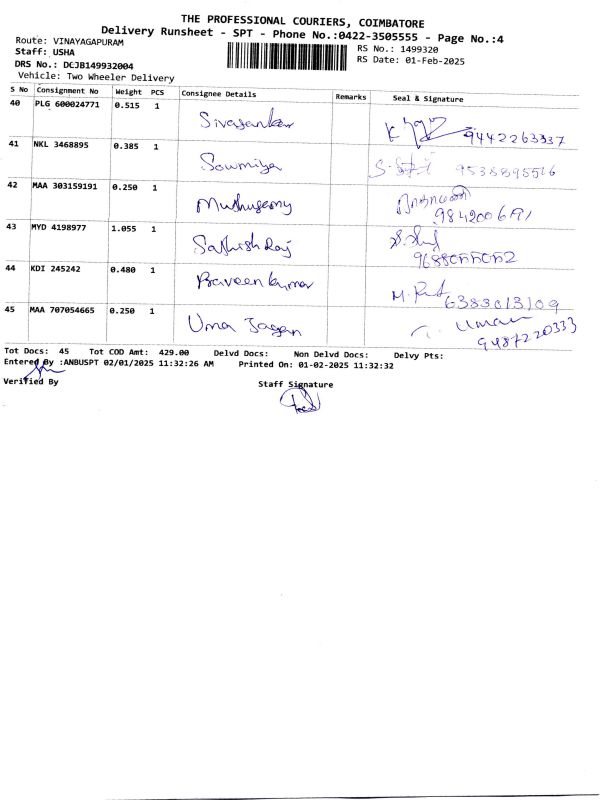 THE PROFESSIONAL COURIERS, COIMBATORE
Delivery Runsheet - SPT - Phone No.:0422-3505555 - Page No.:4
Route: VINAYAGAPURAM
Staff: USHA
DRS No.: DCJB149932004
Vehicle: Two Wheeler Delivery
RS No.: 1499320
RS Date: 01-Feb-2025
S No Consignment No Weight PCS Consignee Details Remarks Seal & Signature
40 PLG 600024771 0.515 1 Sivasankar 9442263337
41 NKL 3468895 0.385 1 Sowmiya 9538895516
42 MAA 303159191 0.250 1 Muthusamy 9842006691
43 MYD 4198977 1.055 1 Sathish Raj
44 KDI 245242 0.480 1 Praveen kumar 6383013109
45 MAA 707054665 0.250 1 Uma Jagan 9487220333
Tot Docs: 45 Tot COD Amt: 429.00 Delvd Docs: Non Delvd Docs: Delvy Pts:
Entered By :ANBUSPT 02/01/2025 11:32:26 AM Printed On: 01-02-2025 11:32:32
Verified By Staff Signature